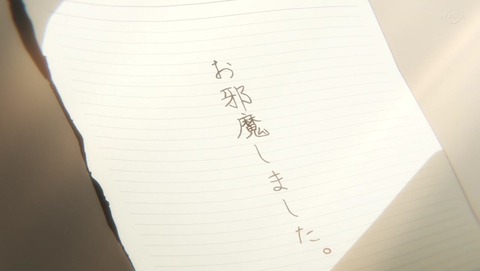 お邪魔しました。